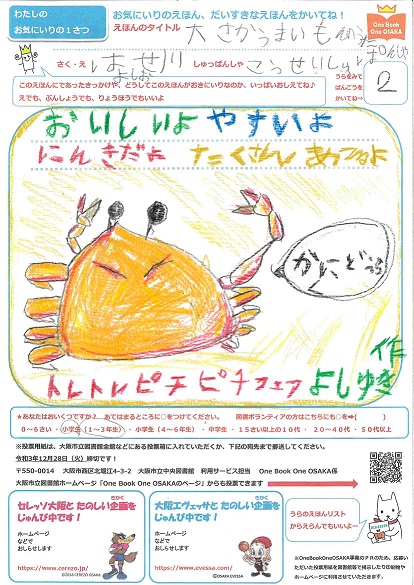 わたしの
お気にいりの1さつ
お気にいりのえほん、だいすきなえほんをかいてね！
One Book
One OSAKA
えほんのタイトル 大さかうまいもん
さく・え はせ川よしふ
しゅっぱんしゃ
うらをみて
ばんごうを
かいてね⇒
2
このえほんにであったきっかけや、どうしてこのえほんがおきにいりなのか、いっぱいおしえてね♪
えでも、ぶんしょうでも、りょうほうでもいいよ
おいしいよ やすいよ
にんきだよ たくさん あつまるよ
かにどうらく
作
トレトレピチピチフェア よしゆき
★あなたはおいくつですか？ あてはまるところに○をつけてください。 図書ボランティアの方はこちらにも○を⇒( )
0～6さい・小学生(1～3年生)・小学生(4～6年生)・中学生・15さい以上の10代・20～40代・50代以上
※投票用紙は、大阪市立図書館全館などにある投票箱に入れていただくか、下記の宛先まで郵送してください。
令和3年12月28日(火)締切です！
〒550-0014 大阪市西区北堀江4-3-2 大阪市立中央図書館 利用サービス担当 One Book One OSAKA係
大阪市立図書館ホームページ「One Book One OSAKAのページ」からも投票できます
セレッソ大阪と たのしい企画を
きかく
じゅんび中です！
ホームページ
などで
おしらせします
https://www.cerezo.jp/
©2018 CEREZO OSAKA
大阪エヴェッサと たのしい企画を
きかく
じゅんび中です！
ホームページ
などで
おしらせします
https://www.evessa.com/
©OSAKA EVESSA
うらのえほんリスト
からえらんでもいいよ！
※OneBookOneOSAKA事業のPRのため、応募いただいた投票用紙を図書館等で掲示したり印刷物やホームページに利用させていただきます。